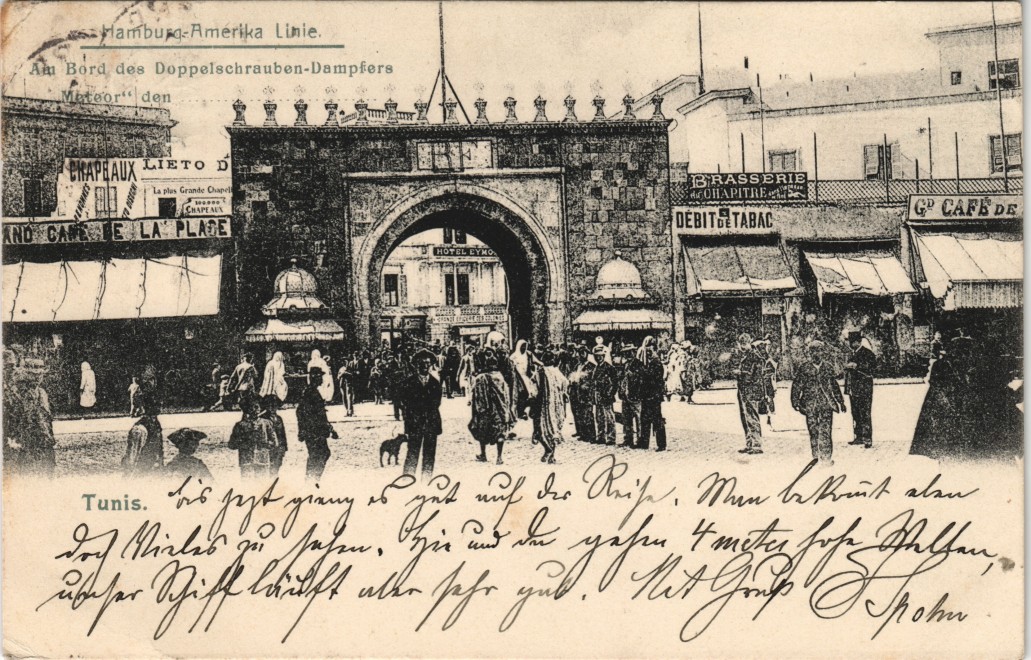 Hamburg-Amerika Linie.
Am Bord des Doppelschrauben-Dampfers
Meteor" den
CHAPEAUX
LIETO
La plus Grande Chapel
CHAPEAUX
AND CAFÉ DE LA PLACE
HÔTEL EYMO
BRASSERIE
du CHAPITRE
DÉBIT DE TABAC
GD CAFÉ DE
Tunis.
bis jetzt gieng es gut auf der Reise. Man bekomt eben
doch Vieles zu sehen. Hie und da gehen 4 meter hohe Wellen,
unser Schiff läuft aber sehr gut. Mit Gruß
Spohn